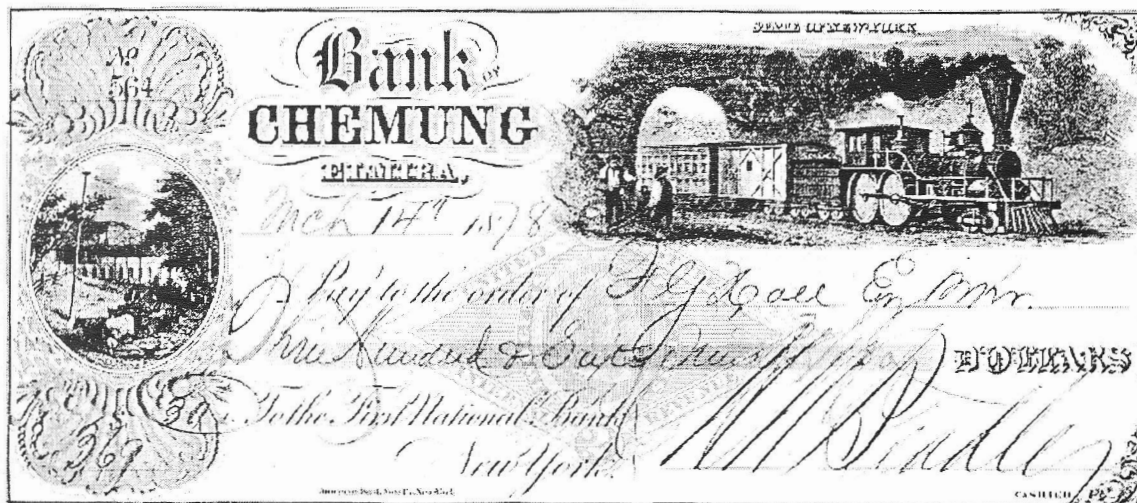 No.
564
Bank OF
CHEMUNG
ELMIRA,
STATE OF NEW-YORK
Mch 14th 1878
Pay to the order of F G Hall
Three Hundred & DOLLARS
369
To the First National Bank
New York.
American Bank Note Co. New York
CASHIER